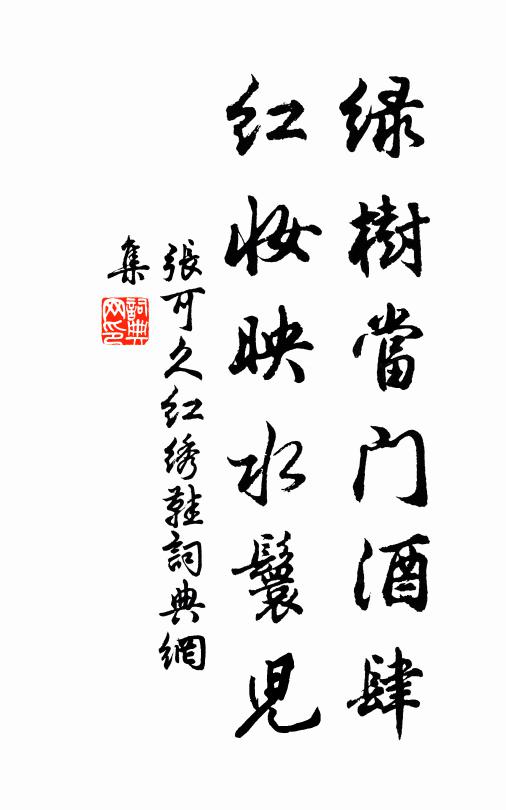 绿樹當门酒肆
红妆映水鬟兒
張可久红绣鞋詞典網
集
詞典网印